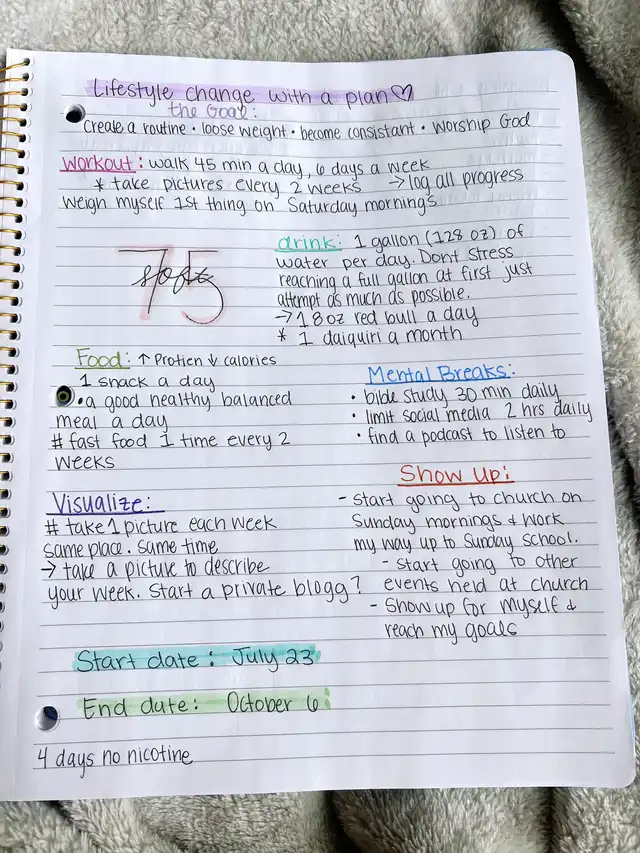 Lifestyle change with a plan♡
the Goal:
Create a routine • loose weight • become consistant • worship God
Workout: walk 45 min a day, 6 days a week
* take pictures every 2 weeks → log all progress
weigh myself 1st thing on Saturday morning's
75
soft
drink: 1 gallon (128 oz) of
water per day. Dont stress
reaching a full gallon at first just
attempt as much as possible.
→ 1 8oz red bull a day
* 1 daiquiri a month
Food: ↑ Protien ↓ calories
1 snack a day
• a good healthy balanced
meal a day
# fast food 1 time every 2
weeks
Mental Breaks:
• bible study 30 min daily
• limit social media 2 hrs daily
• find a podcast to listen to
Visualize:
# take 1 picture each week
same place. same time
→ take a picture to describe
your week. Start a private blogg?
Show Up:
- start going to church on
Sunday mornings & work
my way up to Sunday school.
- start going to other
events held at church
- Show up for myself &
reach my goals
Start date: July 23
End date: October 6
4 days no nicotine